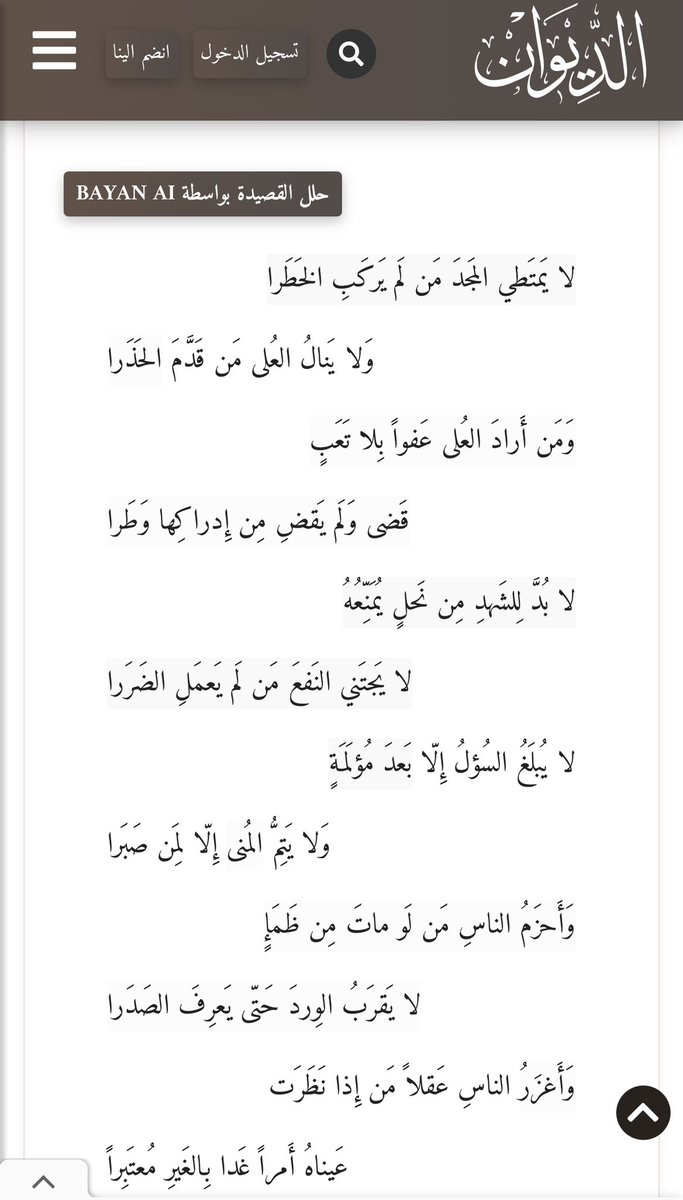 الدِّيوَان
تسجيل الدخول
انضم الينا
حلل القصيدة بواسطة BAYAN AI
لا يَمتَطي المَجدَ مَن لَم يَركَبِ الخَطَرا
وَلا يَنالُ العُلى مَن قَدَّمَ الحَذَرا
وَمَن أَرادَ العُلى عَفواً بِلا تَعَبٍ
قَضى وَلَم يَقضِ مِن إِدراكِها وَطَرا
لا بُدَّ لِلشَهدِ مِن نَحلٍ يُمَنِّعُهُ
لا يَجتَني النَفعَ مَن لَم يَعمَلِ الضَرَرا
لا يُبلَغُ السُؤلُ إِلّا بَعدَ مُؤلَمَةٍ
وَلا يَتِمُّ المُنى إِلّا لِمَن صَبَرا
وَأَحزَمُ الناسِ مَن لَو ماتَ مِن ظَمَإٍ
لا يَقرَبُ الوِردَ حَتّى يَعرِفَ الصَدَرا
وَأَغزَرُ الناسِ عَقلاً مَن إِذا نَظَرَت
عَيناهُ أَمراً غَدا بِالغَيرِ مُعتَبِراً